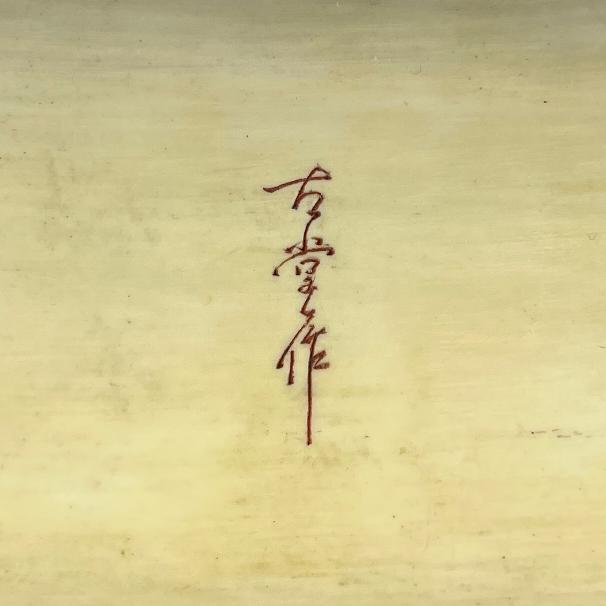 古堂作